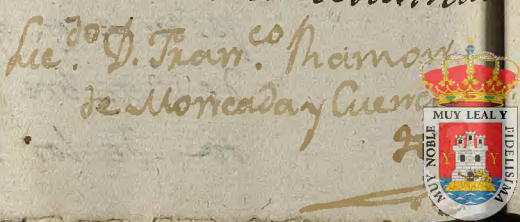 Lic.do D. Fran.co Ramon
de Moncada y Cuen
MUY NOBLE MUY LEAL Y FIDELISIMA
Y Y